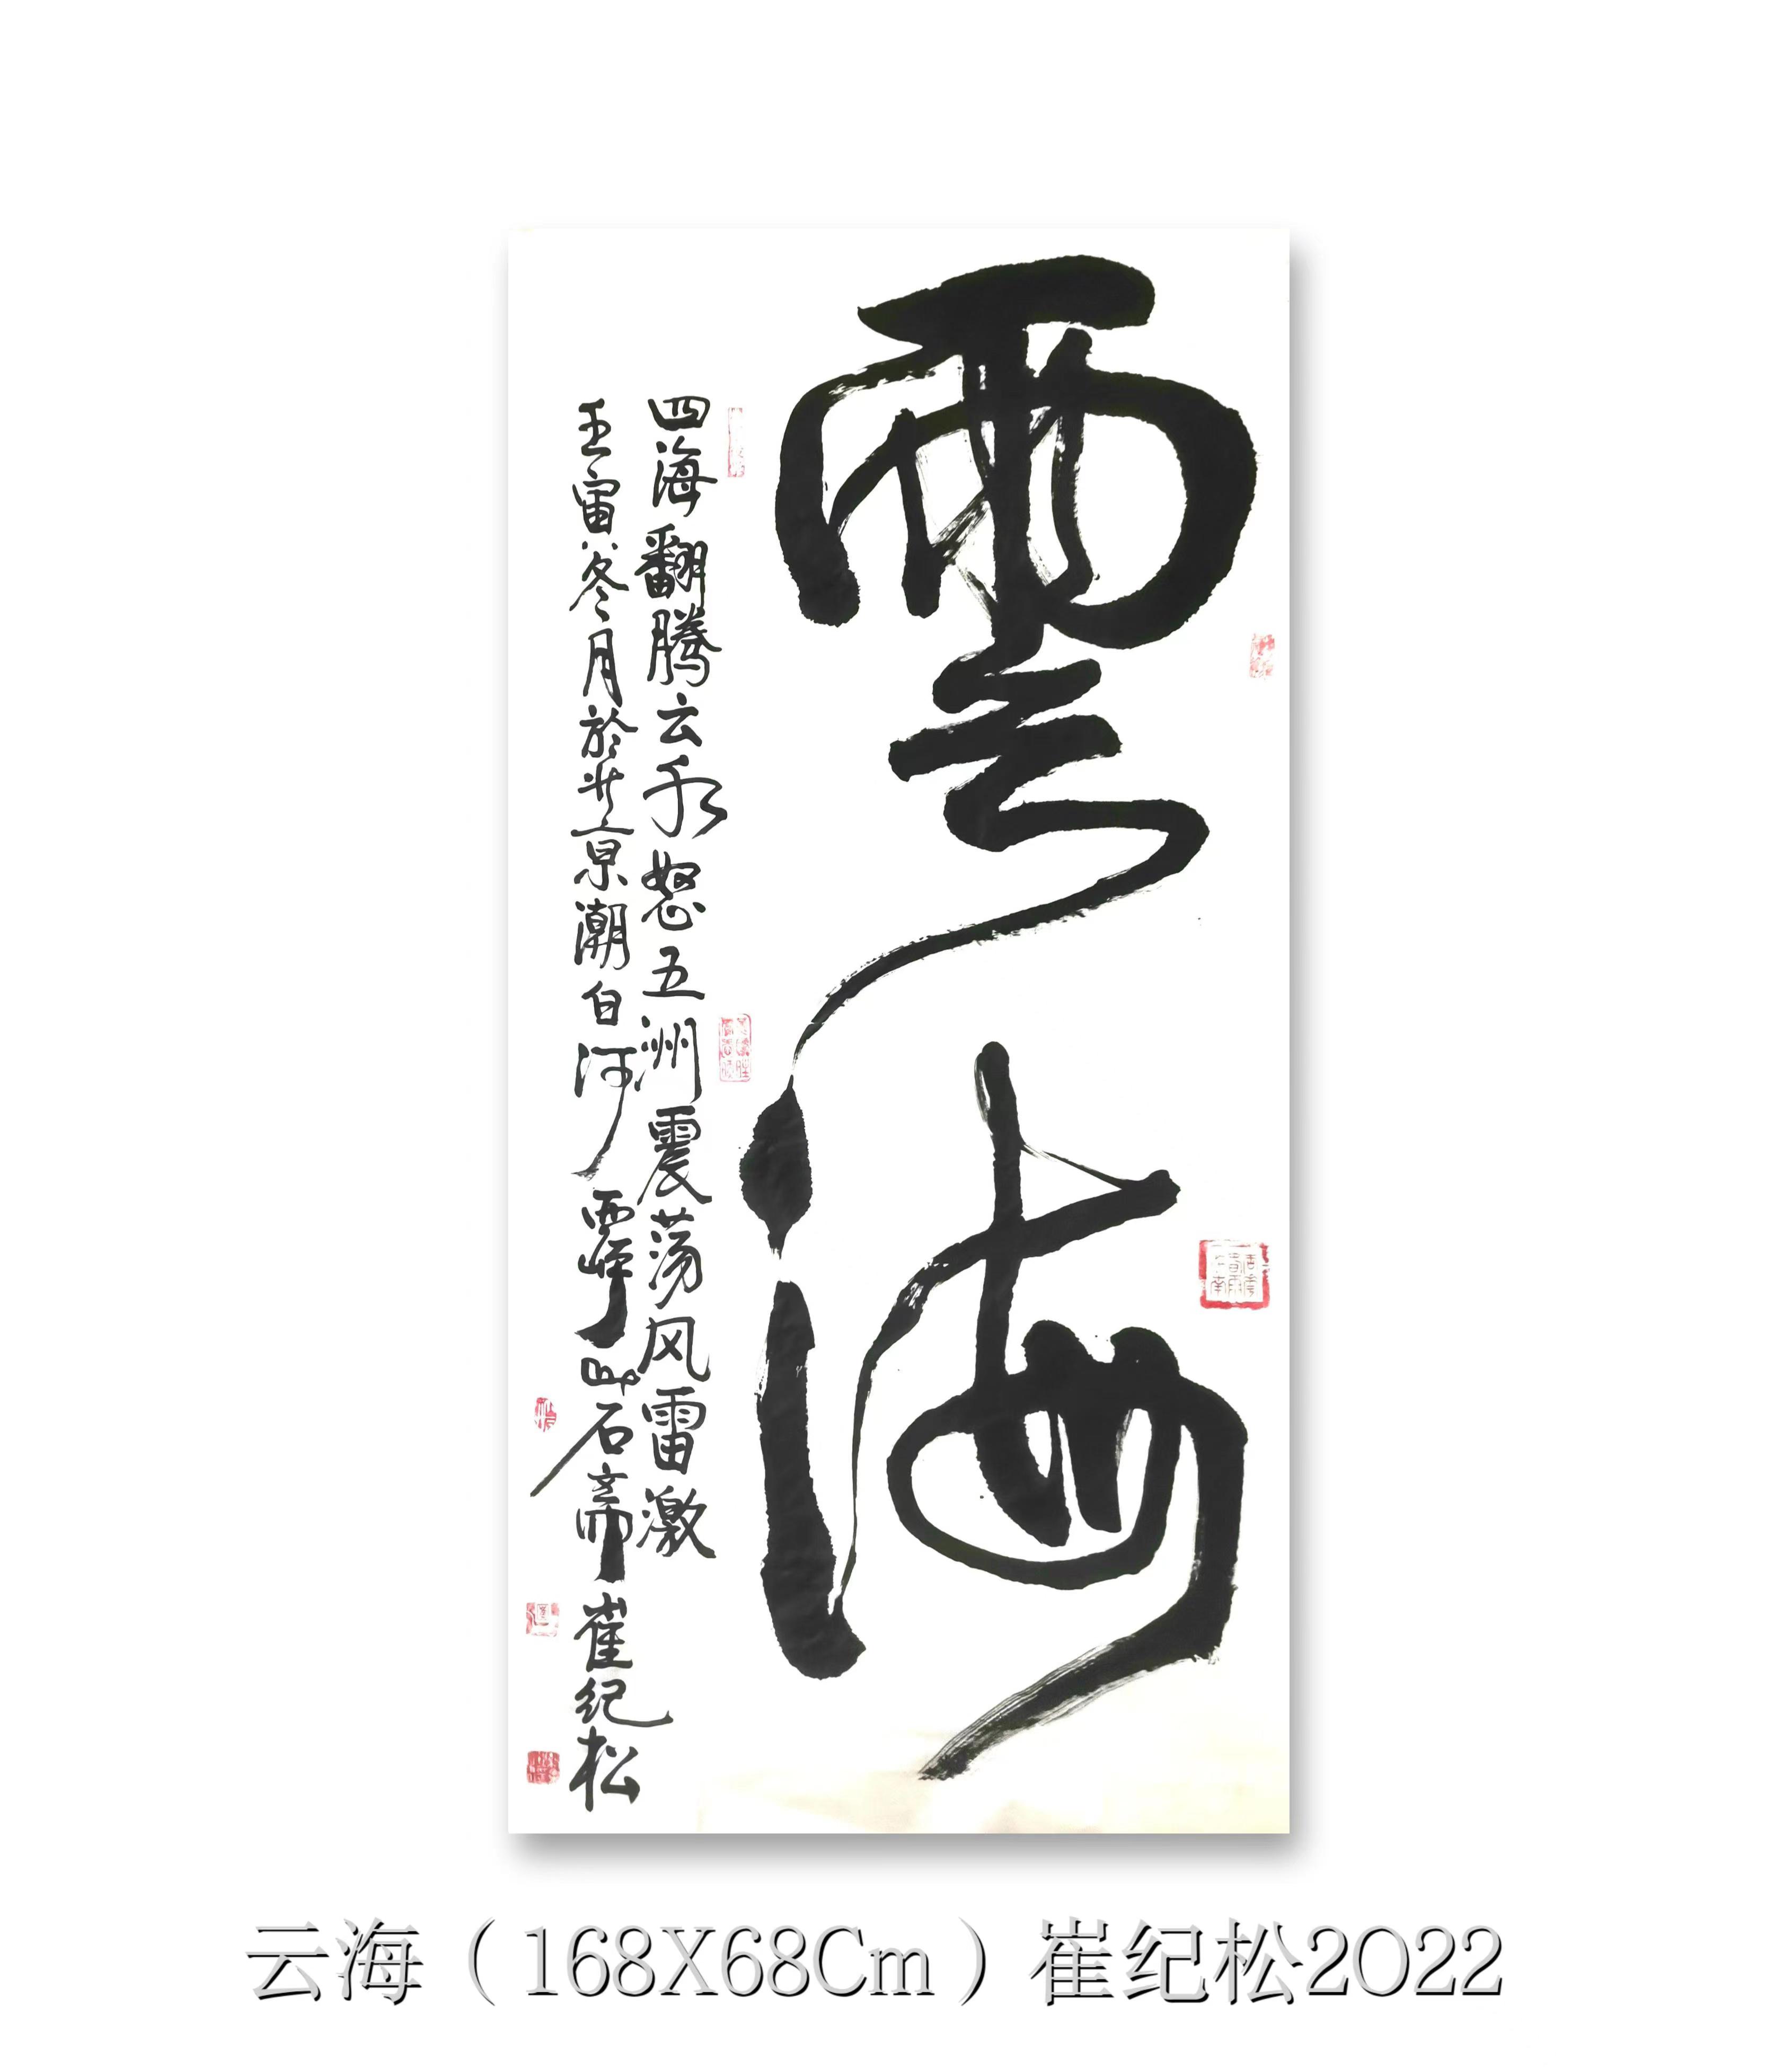 雲海
四海翻腾云水怒五洲震荡风雷激
壬寅冬月於北京潮白河
石斋崔纪松
云海（168X68Cm）崔纪松2022